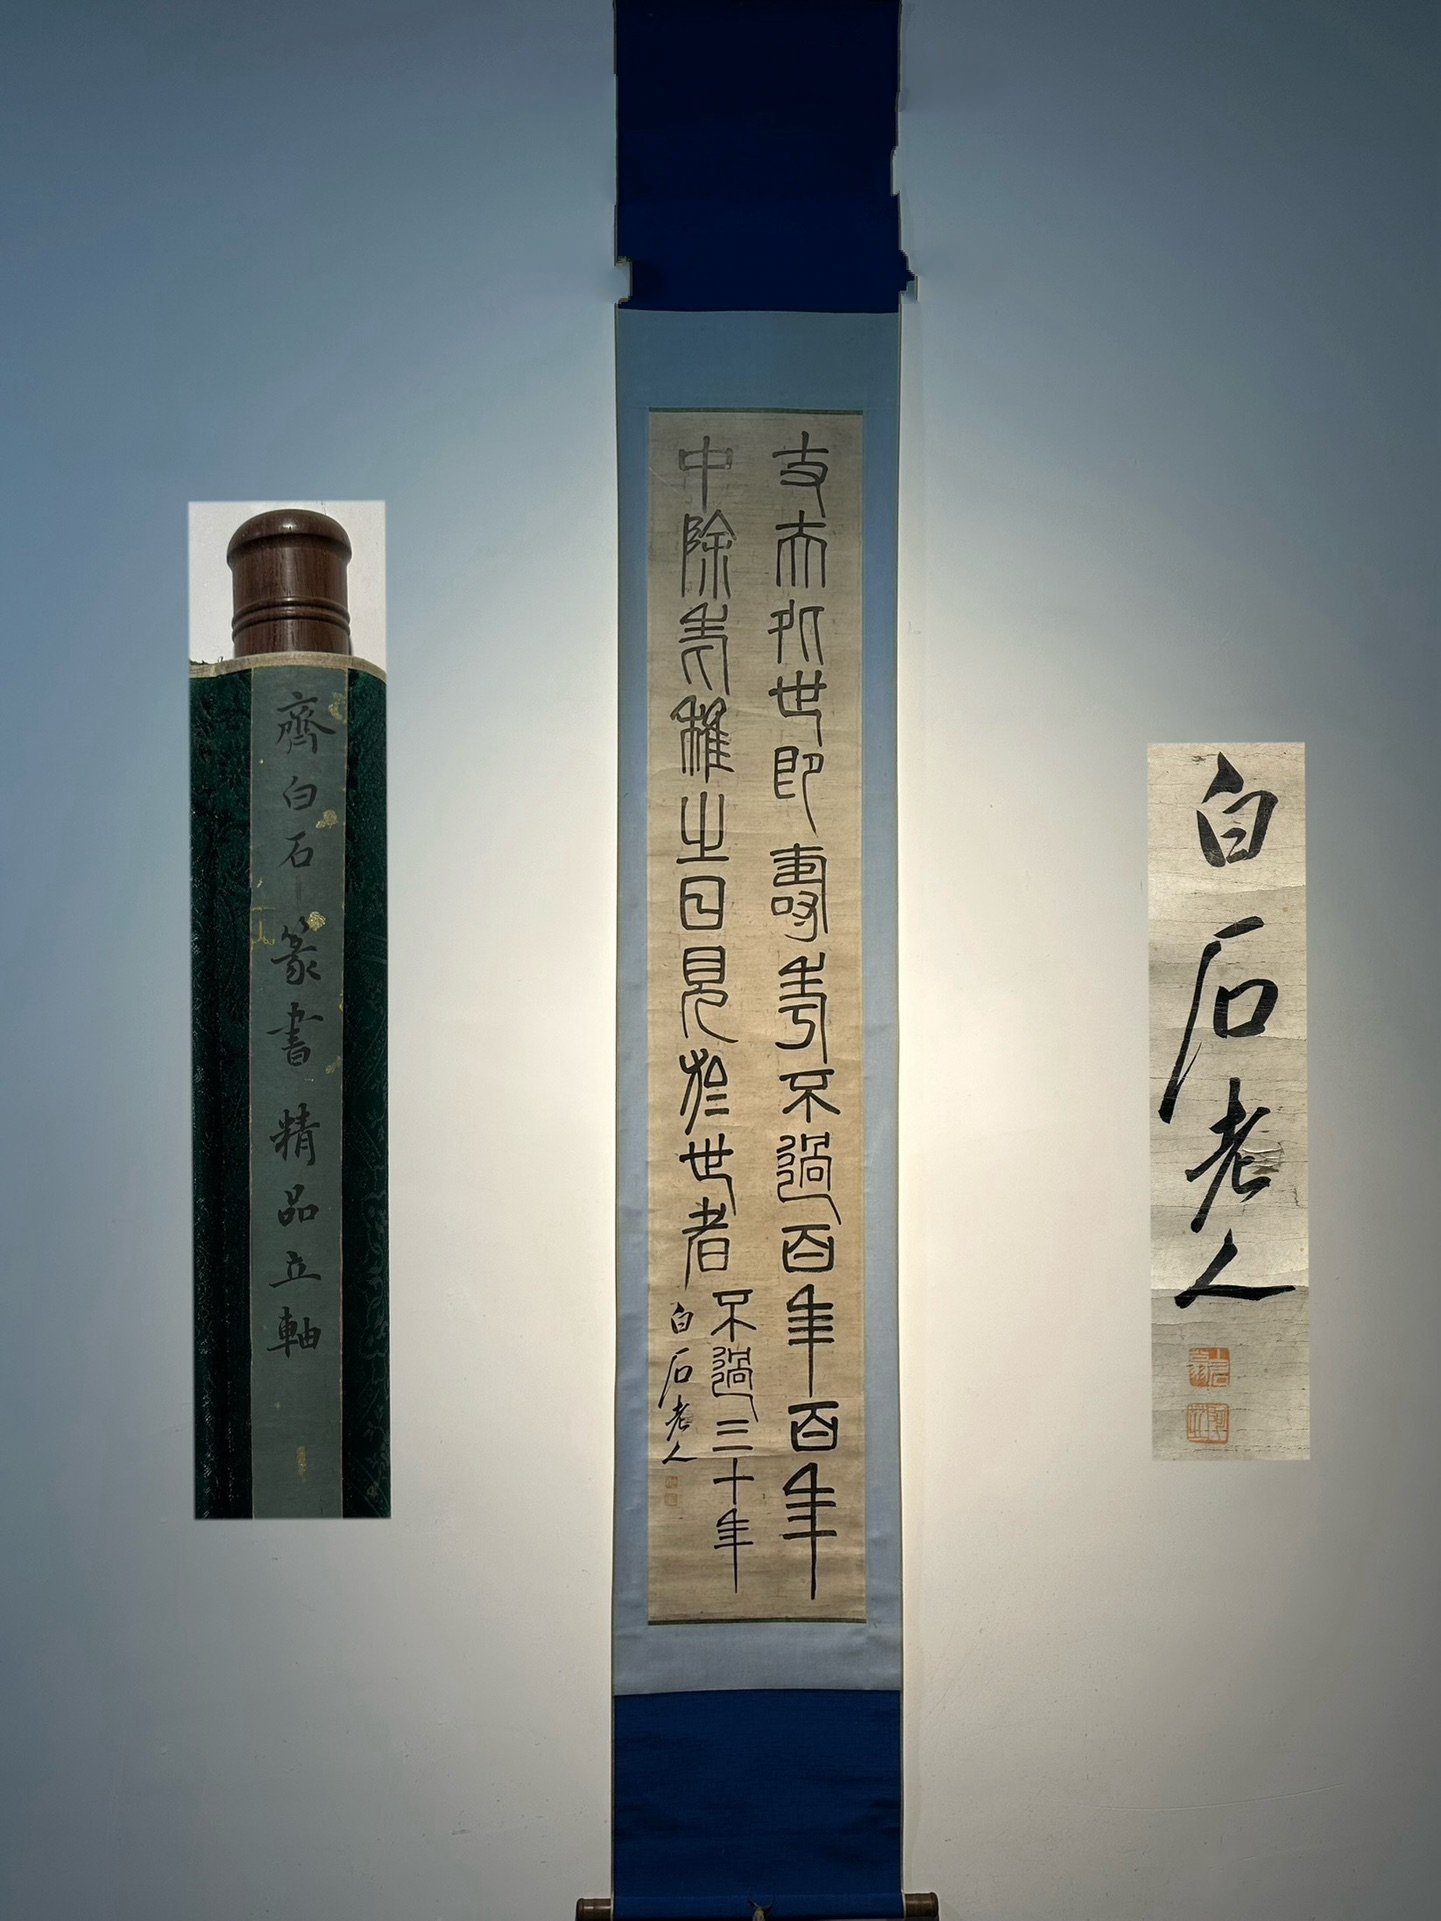 齊白石篆書精品立軸
丈夫処世即壽考不過百年百年
中除老稚之日見於世者不過三十年
白石老人
白石老人